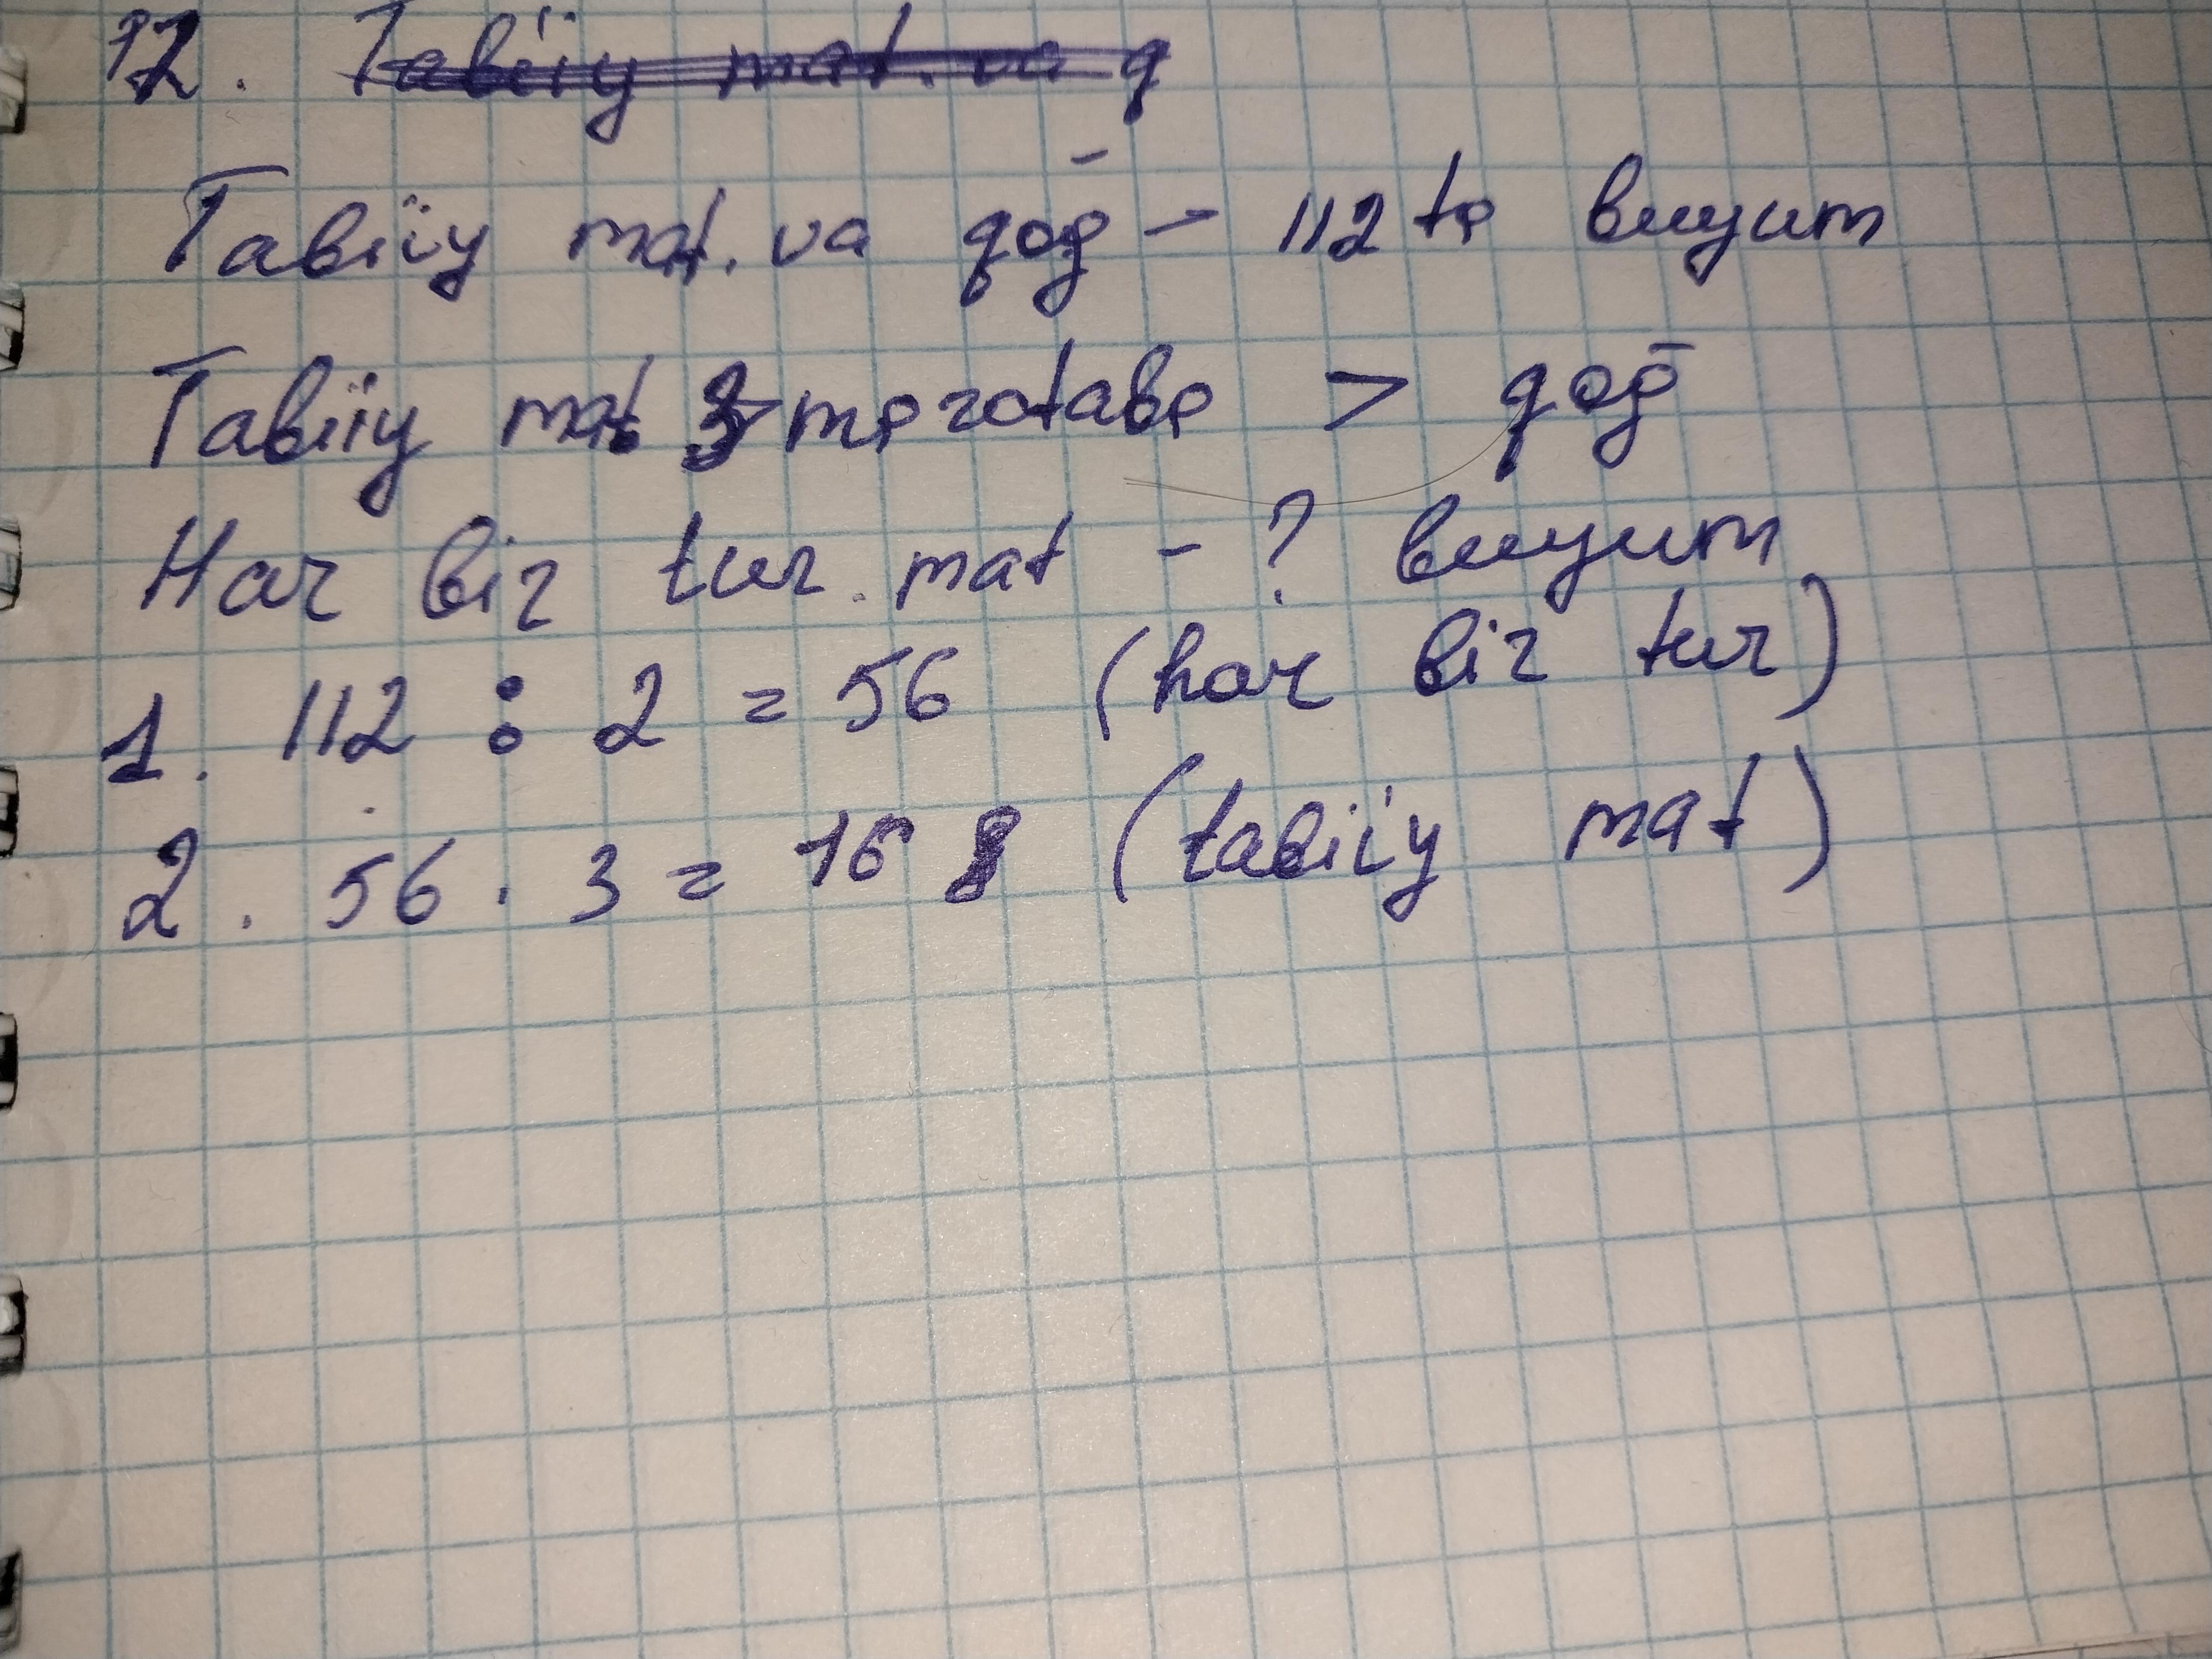 12. Tabiiy mat. va q
Tabiiy mat. va qoḡ - 112 ta buyum
Tabiiy mat 3 marotaba > qoḡ
Har bir tur. mat - ? buyum
1. 112 : 2 = 56 (har bir tur)
2. 56 · 3 = 168 (tabiiy mat)